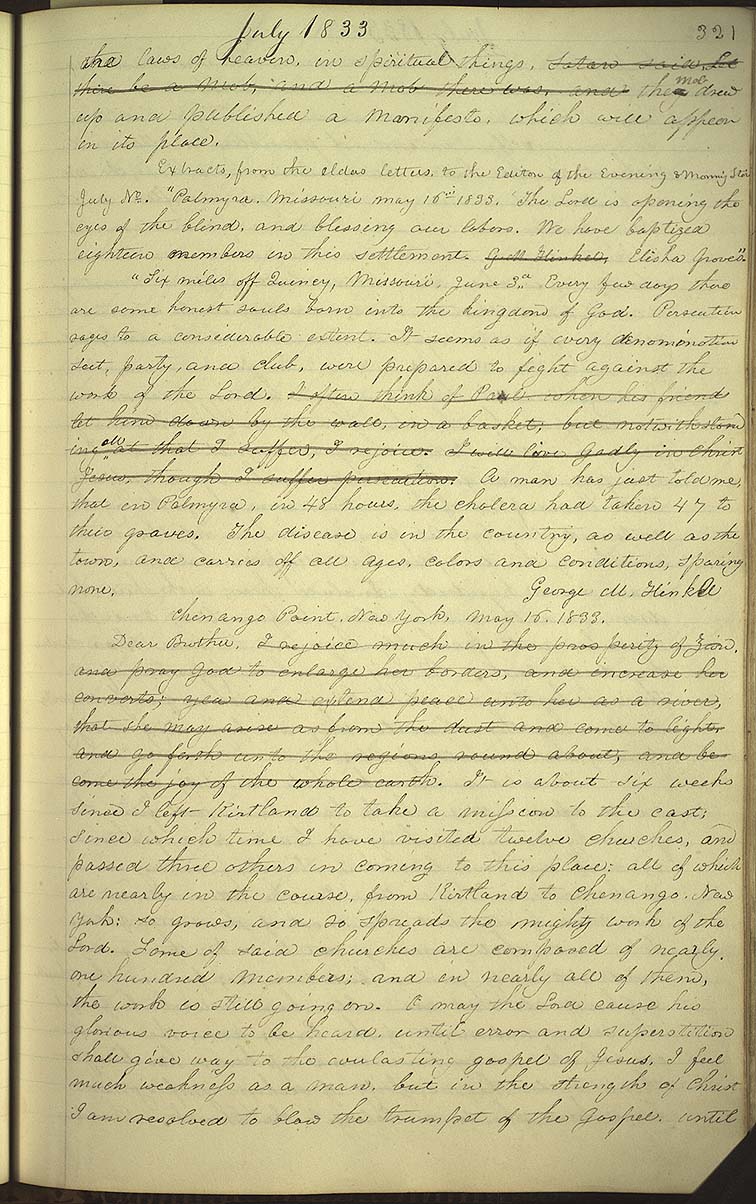 July 1833 321
the laws of heaven, in spiritual things, Satan said, Let
there be a mob, and a mob there was, and the mob drew
up and published a Manifesto, which will appear
in its place.
Extracts, from the elders letters, to the Editor of the Evening & Morning Star
July No. "Palmyra. Missouri may 16th 1833. The Lord is opening the
eyes of the blind, and blessing our labors. We have baptized
eighteen members in this settlement. G. M. Hinkel, Elisha Groves".
"Six miles off Quincy, Missouri, June 3rd Every few days there
are some honest souls born into the kingdom of God. Persecution
rages to a considerable extent. It seems as if every denomination
sect, party, and club, were prepared to fight against the
work of the Lord. I often think of Paul when his friend
let him down by the wall, in a basket, but notwithstand
ing all that I suffer, I rejoice. I will live Godly in Christ
Jesus, though I suffer persecution. A man has just told me,
that in Palmyra, in 48 hours, the cholera had taken 47 to
their graves. The disease is in the country, as well as the
town, and carries off all ages, colors and conditions, sparing
none. George M. Hinkle
Chenango Point, New York, May 16. 1833.
Dear Brother, I rejoice much in the prosperity of Zion,
and pray God to enlarge her borders, and increase her
converts; yea and extend peace unto her as a river,
that she may arise as from the dust and come to light,
and go forth unto the regions round about, and be-
come the joy of the whole earth. It is about six weeks
since I left Kirtland to take a mission to the east;
since which time I have visited twelve churches, and
passed three others in coming to this place: all of which
are nearly in the course, from Kirtland to Chenango. New
York: so grows, and so spreads the mighty work of the
Lord. Some of said churches are composed of nearly
one hundred members; and in nearly all of them,
the work is still going on. O may the Lord cause his
glorious voice to be heard, until error and superstition
shall give way to the everlasting gospel of Jesus, I feel
much weakness as a man, but in the strength of Christ
I am resolved to blow the trumpet of the Gospel. until